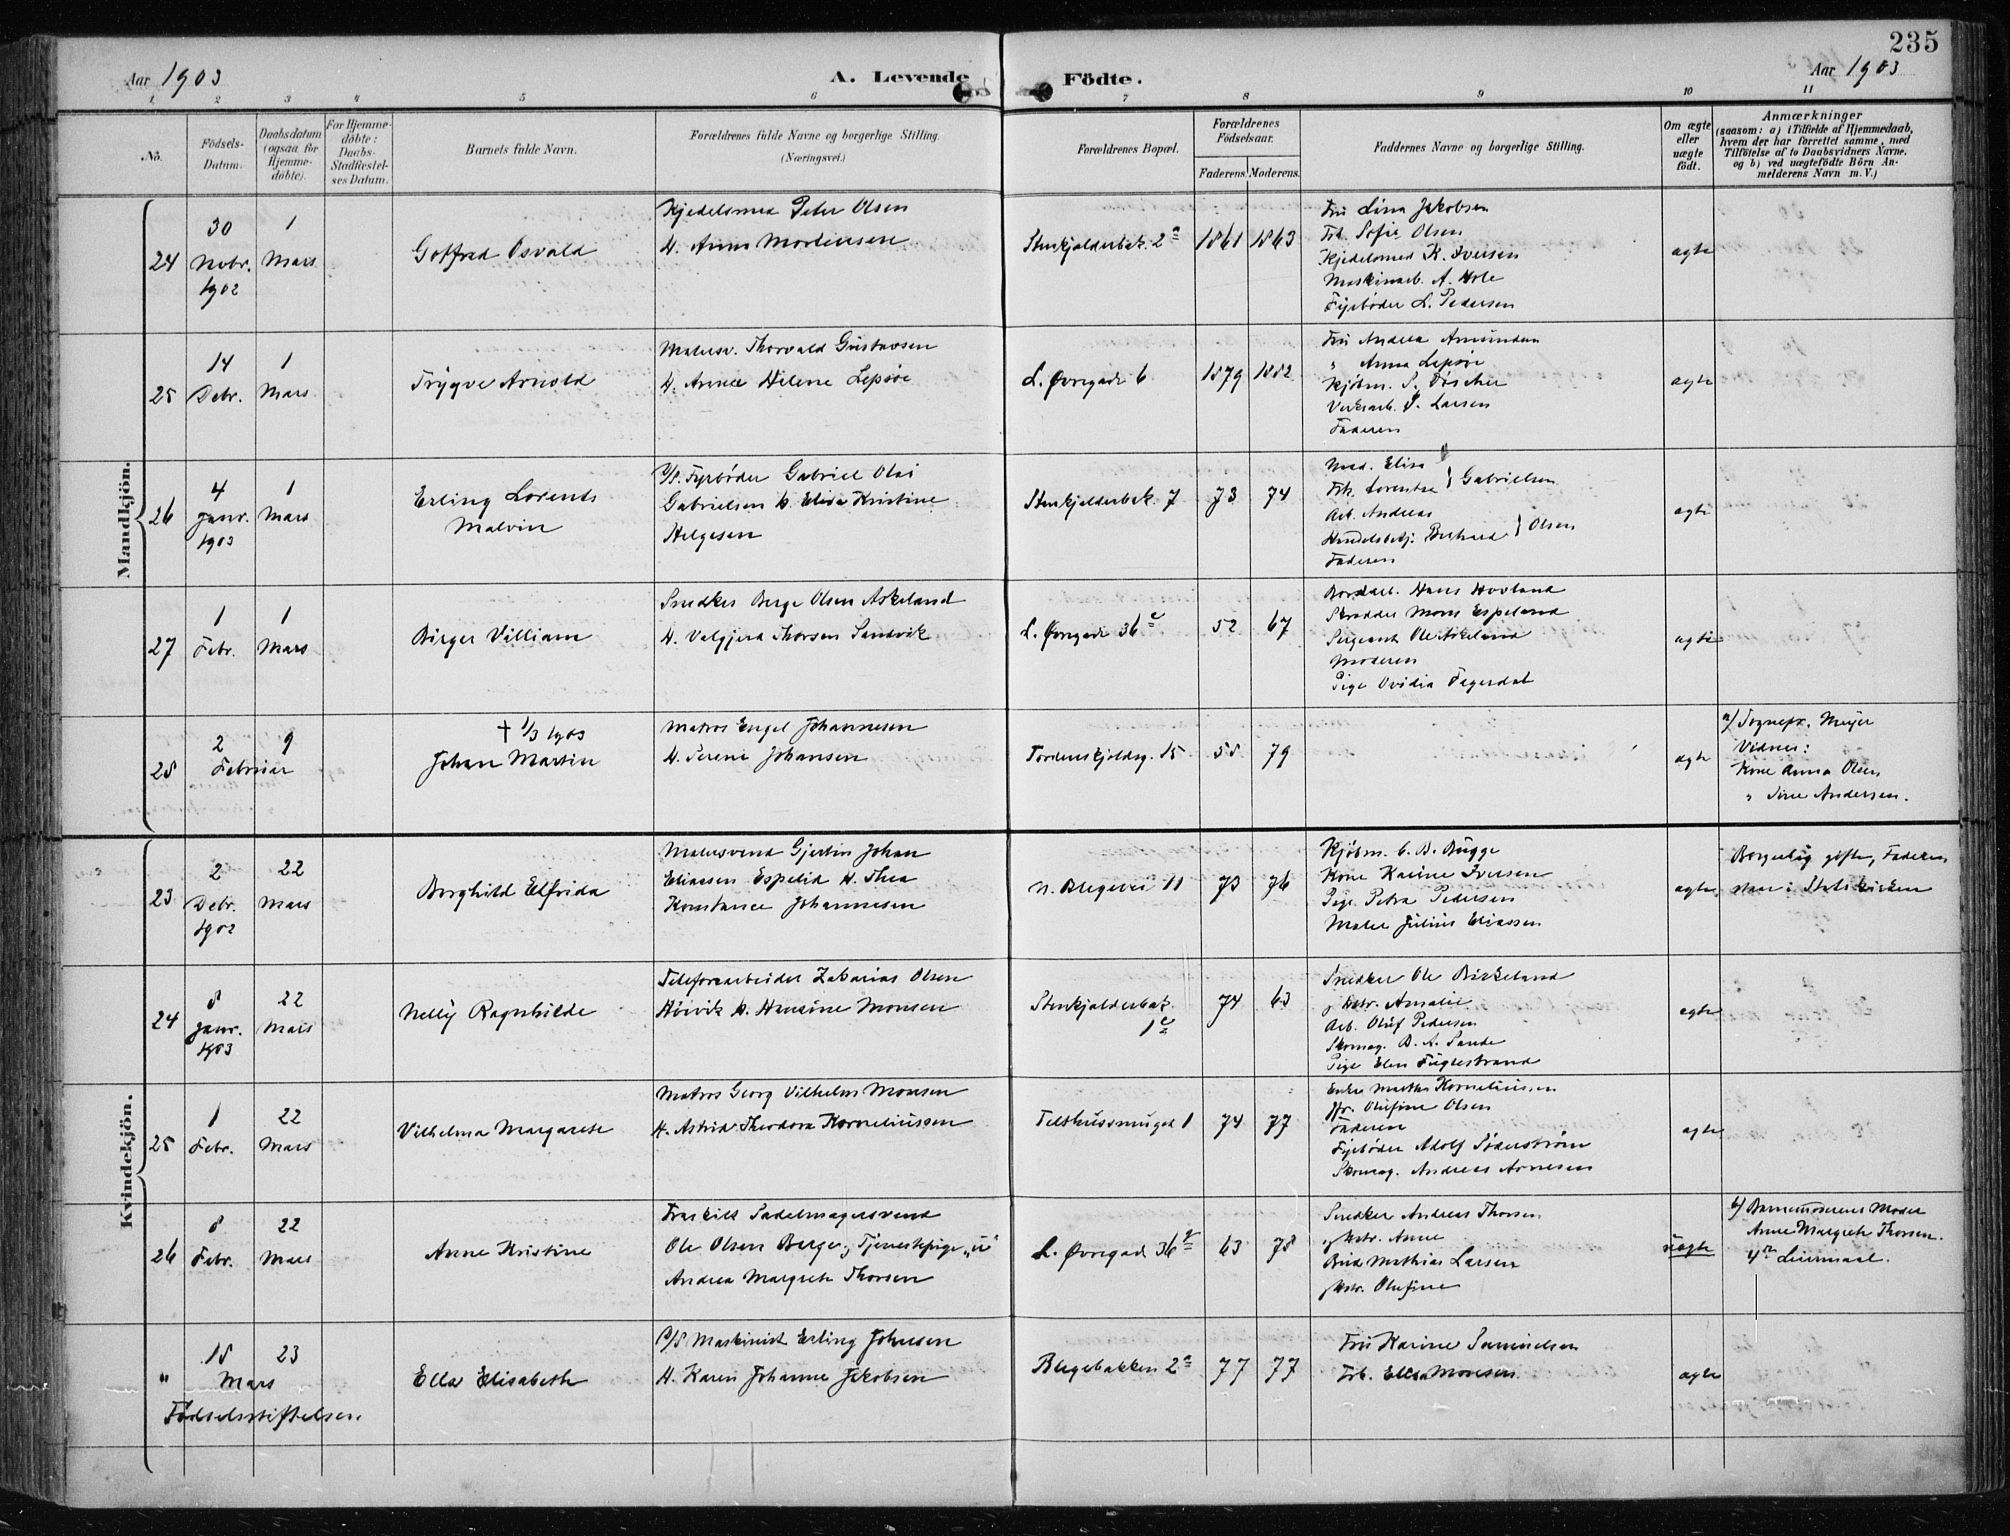 235
Aar 1903
A. Levende Födte.
Aar 1903
1 2 3 4 5 6 7 8 9 10 11
No.
Födsels-
Datum.
Daabsdatum
(ogsaa for
Hjemme-
döbte).
For Hjemme-
döbte:
Daabs-
Stadfæstel-
ses Datum.
Barnets fulde Navn.
Forældrenes fulde Navne og borgerlige Stilling.
(Næringsvei.)
Forældrenes Bopæl.
Forældrenes
Födselsaar.
Faderens. Moderens.
Faddernes Navne og borgerlige Stilling.
Om ægte
eller
uægte
født.
Anmærkninger
(saasom: a) i Tilfælde af Hjemmedaab,
hvem der har forrettet samme, med
Tilföielse af to Daabsvidners Navne.
og b) ved uægtefödte Börn An-
melderens Navn m. V.)
Mandkjön.
24
30
Novbr.
1902
1
Mars
Gotfred Osvald
Kjedelsmed Peter Olsen
H. Anna Mortensen
Stenkjelderbak. 2a
1861 1863
Fru Lina Jakobsen
Frk. Sofie Olsen
Kjedelsmed K. Iversen
Maskinarb. A. Hole
Fyrbøder L. Pedersen
ægte
25
14
Debr.
1
Mars
Trygve Arnold
Malersv. Thorvald Gustavsen
H. Anna Helene Lepsøe
L. Øvregade 6
1879 1882
Fru Andrea Amundsen
" Anna Lepsøe
Kjøbm. S. Fischer
Verksarb. P. Larsen
Faderen
ægte
26
4
Janr.
1903
1
Mars
Erling Lorents
Malvin
D/S. Fyrbøder Gabriel Olai
Gabrielsen H. Elisa Kristine
Helgesen
Stenkjelderbak. 7
73 74
Mad. Elisa
Frk. Lorentse } Gabrielsen
Arb. Andreas
Handelsbetj. Berhard } Olsen
Faderen
ægte
27
1
Febr.
1
Mars
Birger Villiam
Snedker Berge Olsen Askeland
H. Valgjerd Thorsen Sandvik
L. Øvregade 36c
52 67
Bordarb. Hans Hovland
Skrædder Mons Espeland
Sergeant Ole Askeland
Moderen
Pige Ovidia Fagerdal
ægte
28
2 9
Februar
† 1/3 1903
Johan Martin
Matros Engel Johannesen
H. Serine Johansen
Tordenskjoldsg. 15
58 79
ægte
a) Sognepr. Meyer
Vidner:
Kone Anna Olsen
" Sine Andersen.
Kvindekjön.
23
2
Debr.
1902
22
Mars
Borghild Elfrida
Malersvend Gjertin Johan
Eliassen Espelid H. Thea
Konstance Johannesen
N. Blegevei 11
73 76
Kjøbm. C. B. Bugge
Kone Karine Iversen
Pige Petra Pedersen
Maler Julius Eliassen
ægte
Borgerlig gifte, Faderen
staar i Statskirken
24
8
Janr.
1903
22
Mars
Nelly Ragnhilde
Telefonarbeider Zakarias Olsen
Høivik H. Hansine Monsen
Stenkjelderbak.
1c
74 63
Snedker Ole Birkeland
og Hstr. Amalie
Arb. Oluf Pedersen
Skomag. B. A. Sande
Pige Elen Fuglestrand
ægte
25
1
Febr.
22
Mars
Vilhelma Margarete
Matros Georg Vilhelm Monsen
H. Astrid Theodora Korneliussen
Felthussmuget 1
74 77
Enke Marthe Korneliussen
Jfr. Olufine Olsen
Faderen
Fyrbøder Adolf Söderström
Skomag. Andreas Arnesen
ægte
26
8
Febr.
22
Mars
Anne Kristine
Fraskilt Sadelmagersvend
Ole Olsen Berge, Tjenestepige "u"
Andrea Margrete Thorsen
L. Øvregade 36
63 78
Snedker Andreas Thorsen
og Hstr. Anne
Mathias Larsen
og Hstr. Olufine
uægte
b) Barnemoderens Moder
Anne Margrete Thorsen.
4de Leiermaal.
"
18 23
Mars
Fødselsstiftelsen
Ella Elisabeth
D/S Maskinist Erling Johnsen
H. Karen Johanne Jakobsen
Blegebakken 2a
77 77
Fru Karine Samuelsen
Frk. Ella Monsen
ægte